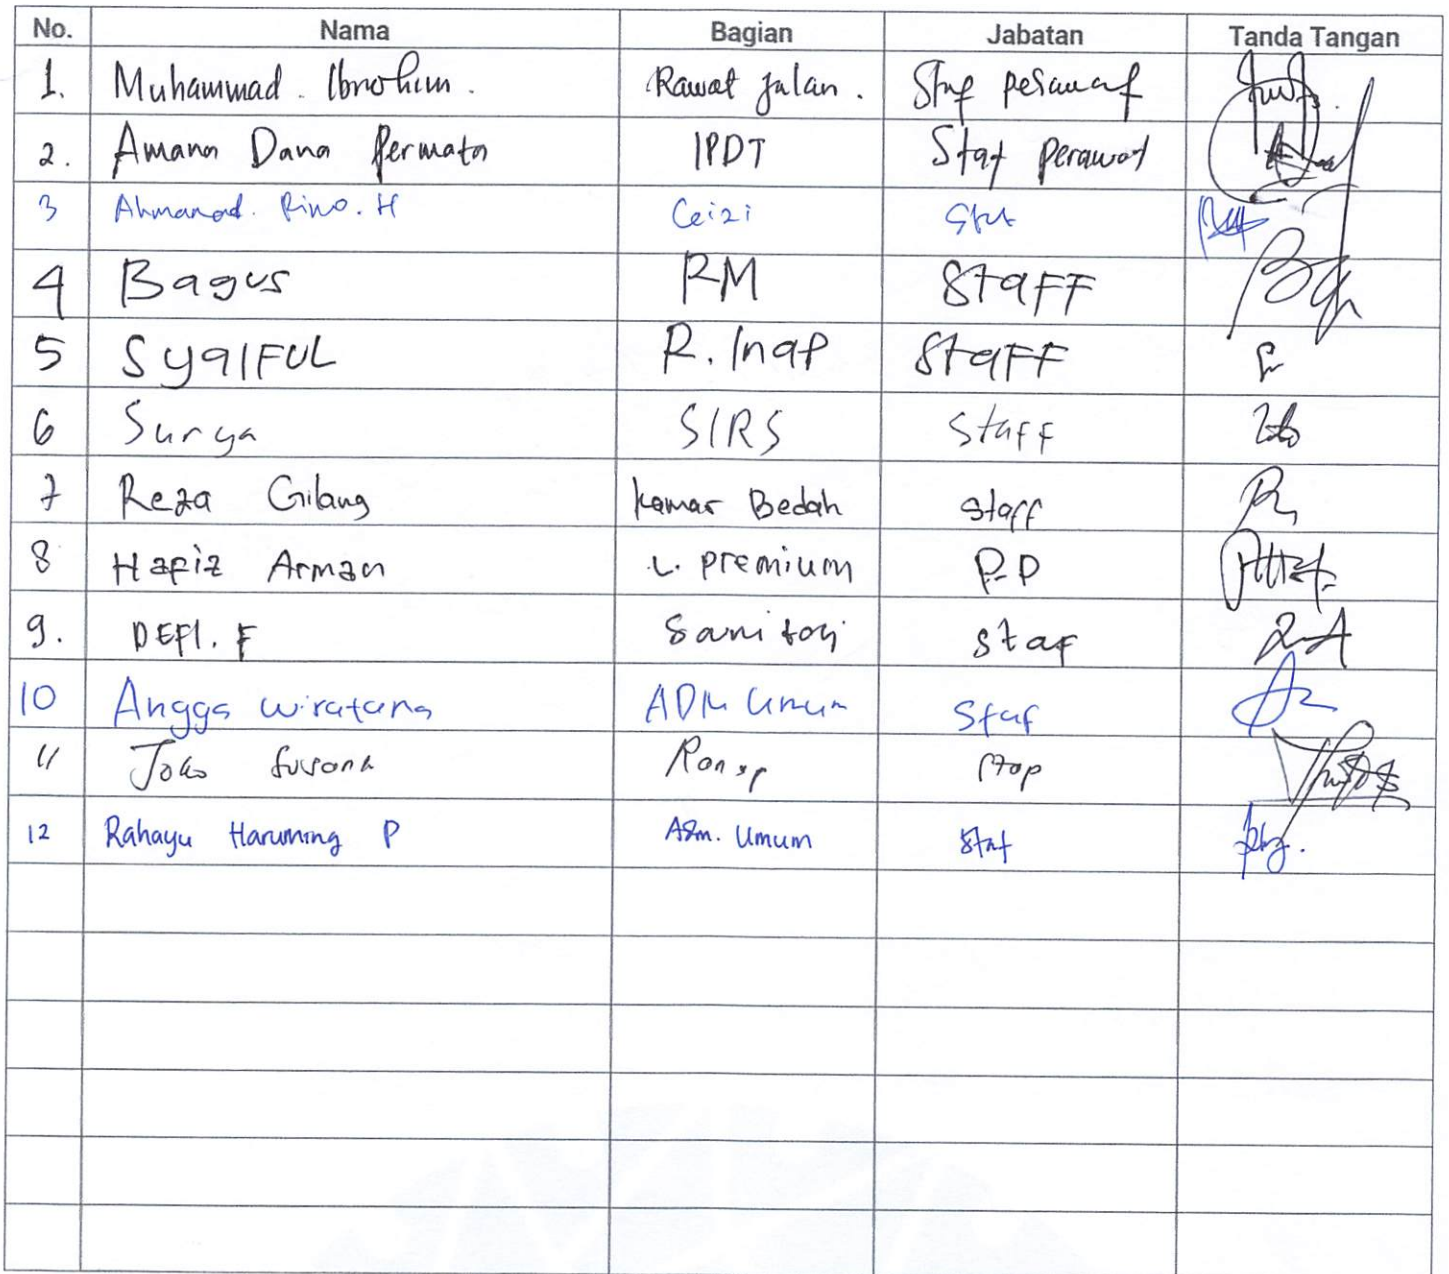 No. Nama Bagian Jabatan Tanda Tangan
1. Muhammad. Ibrohim. Rawat Jalan. Staf perawat
2. Amana Dana Permata IPDT Staf Perawat
3 Ahmanad. Rino. H Geizi Staf
4 Bagus RM STAFF
5 SYAIFUL R. Inap STAFF
6 Surya SIRS STAFF
7 Reza Gilang kamar Bedah staff
8 Hafiz Arman L. premium P.P
9. DEFI. F Sanitasi staf
10 Angga wiratama ADM Umum Staf
11 Joko Staf
12 Rahayu Harumning P Adm. Umum Staf